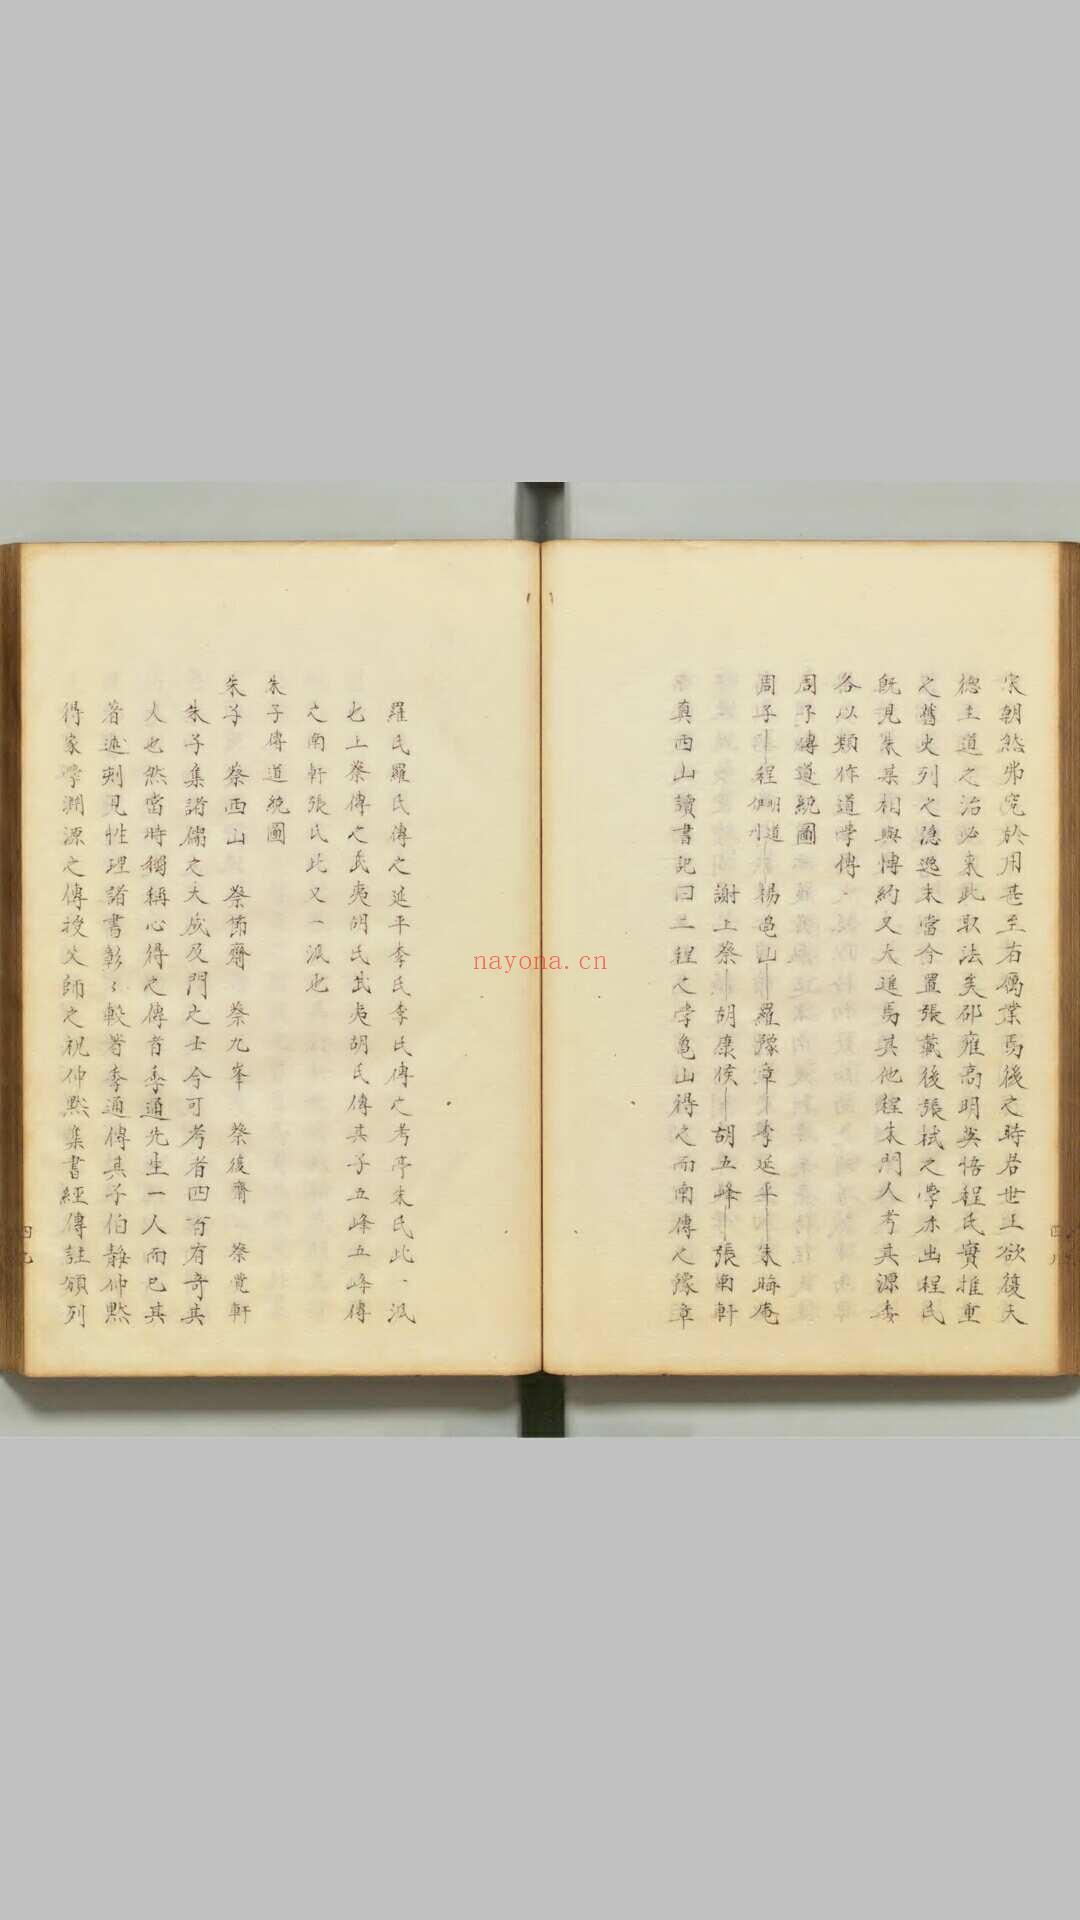 宋朝然弗究於用甚至有厲業焉後之時若世主欲復天
德王道之治必來此取法矣邵雍高明英悟程氏實推重
之舊史列之隱逸未當今置張載後張栻之學亦出程氏
既見朱某相與博約又大進焉其他程朱門人考其源委
各以類作道學傳
周子傳道統圖
周子 程 明道 楊龜山 羅豫章 李延平 朱晦庵
謝上蔡 胡康侯 胡五峰 張南軒
真西山讀書記曰二程之學龜山得之而南傳之豫章
四八
羅氏羅氏傳之延平李氏李氏傳之考亭朱氏此一派
也上蔡傳之武夷胡氏武夷胡氏傳其子五峰五峰傳
之南軒張氏此又一派也
朱子傳道統圖
朱子 蔡西山 蔡節齋 蔡九峯 蔡復齋 蔡覺軒
朱子集諸儒之大成及門之士今可考者四百有奇其
人也然當時獨稱心得之傳者季通先生一人而已其
著述刻見性理諸書彰〻較著季通傳其子伯靜仲默
得家學淵源之傳授父師之祝仲默集書經傳註頒列
四九
nayona.cn